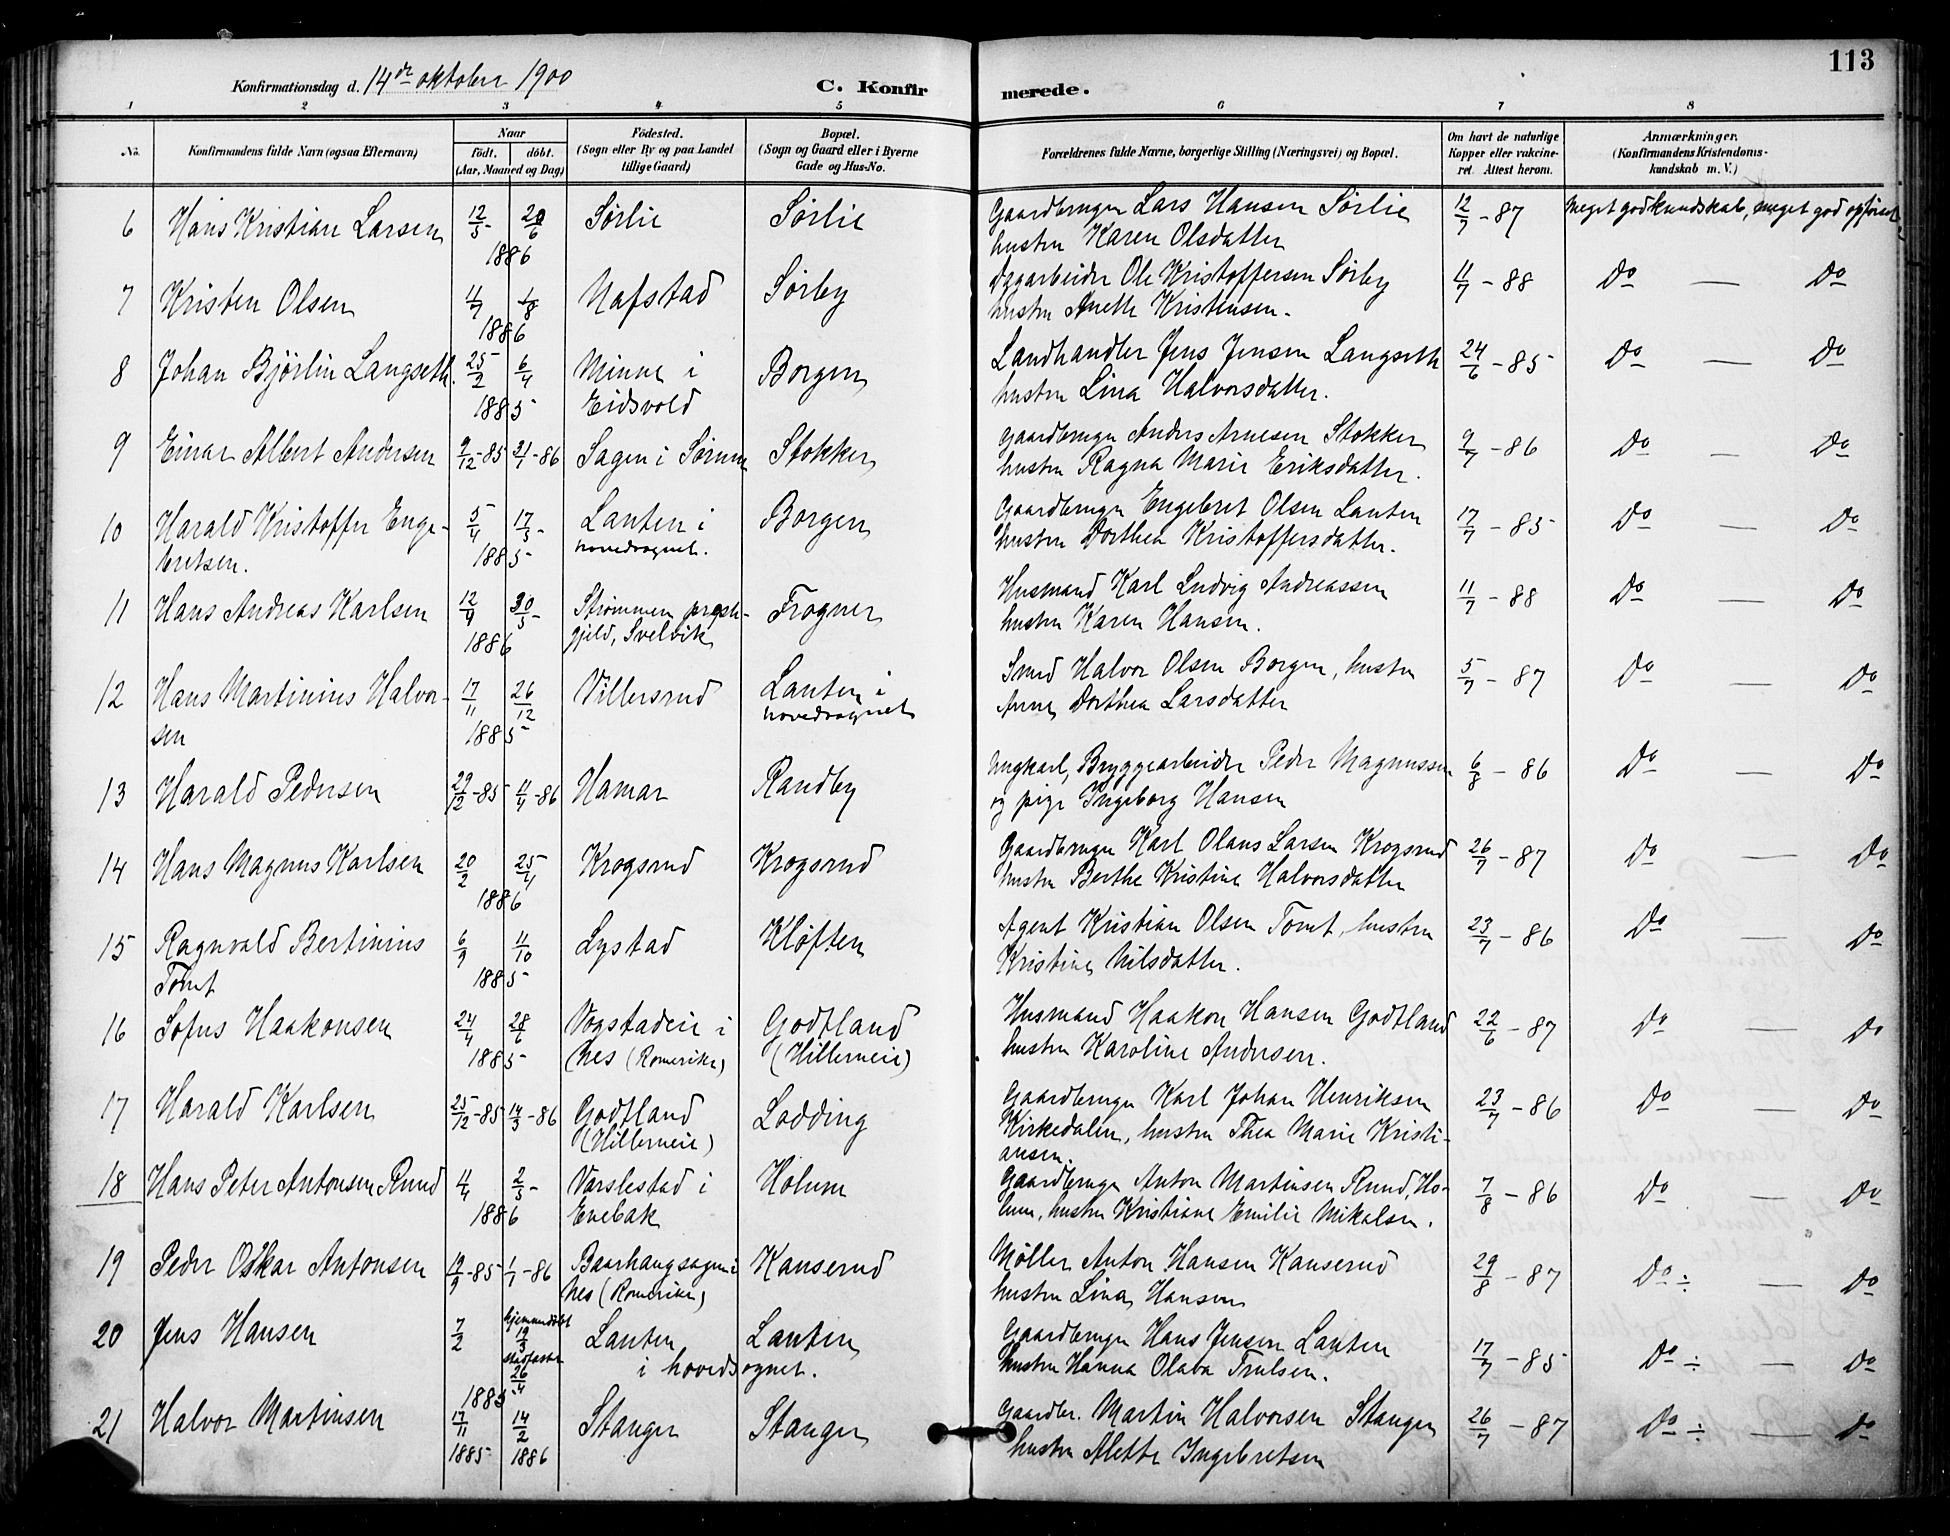 113
Konfirmationsdag d. 14de oktober 1900 C. Konfirmerede.
1 2 3 4 5 6 7 8
No. Konfirmandens fulde Navn (ogsaa Efternavn) Naar født. døbt. (Aar, Maaned og Dag) Fødested. (Sogn eller By og paa Landet tillige Gaard) Bopæl. (Sogn og Gaard eller i Byerne Gade og Hus-No. Forældrenes fulde Navne, borgerlige Stilling (Næringsvei) og Bopæl. Om havt de naturlige Kopper eller vakcineret. Attest herom. Anmærkninger. (Konfirmandens Kristendomskundskab m. V.)
6 Hans Kristian Larsen 12/5 20/6 Sørlie Sørlie Gaardbruger Lars Hansen Sørlie 12/7 - 87 Meget god kundskab, meget god opførsel
1886 hustru Karen Olsdatter
7 Kristen Olsen 11/7 1/8 Nafstad Sørby Dgarbeider Ole Kristoffersen Sørby 11/7 - 88 Do — Do
1886 hustru Anette Kristensen.
8 Johan Bjørlin Langseth. 25/2 6/4 Minne i Borgen Landhandler Jens Jensen Langseth 24/6 - 85 Do — Do
1885 Eidsvold hustru Lina Halvorsdatter.
9 Einar Albert Andersen 9/12-85 31/1-86 Sagen i Sørum Stokker Gaardbruger Anders Arnesen Stokker 9/7 - 86 Do — Do
hustru Ragna Marie Eriksdatter.
10 Harald Kristoffer Enge- 5/4 17/5 Lauten i Borgen Gaardbruger Engebret Olsen Lauten 17/7 - 85 Do — Do
bretsen. 1885 hovedsognet. hustru Dorthea Kristoffersdatter.
11 Hans Andreas Karlsen 12/4 30/5 Strømmen præste- Frogner Husmand Karl Ludvig Andreassen 11/7 - 88 Do — Do
1886 gjeld, Svelvik hustru Karen Hansen.
12 Hans Martinius Halvor- 17/11 26/12 Villersrud Lauten i Smed Halvor Olsen Borgen, hustru 5/7 - 87 Do — Do
sen 1885 hovedsognet Anne Dorthea Larsdatter
13 Harald Pedersen 29/12-85 11/4-86 Hamar Randby Ungkarl, Bryggearbeider Peder Magnussen 6/8 - 86 Do — Do
og pige Ingeborg Hansen
14 Hans Magnus Karlsen 20/2 25/4 Krogsrud Krogsrud Gaardbruger Karl Olaus Larsen Krogsrud 26/7 - 87 Do — Do
1886 hustru Berthe Kristine Halvorsdatter
15 Ragnvald Bertinius 6/9 11/10 Lystad Kløften Agent Kristian Olsen Tomt, hustru 23/7 - 86 Do — Do
Tomt 1885 Kristine Nilsdatter.
16 Sofus Haakonsen 24/4 28/6 Vogstadeie i Godtland Husmand Haakon Hansen Godtland 22/6 - 87 Do — Do
1885 Nes (Romerike) (Hillerneie) hustru Karoline Andersen.
17 Harald Karlsen 25/12-85 14/3-86 Godtland Lodding Gaardbruger Karl Johan Henriksen 23/7 - 86 Do — Do
(Hillerneie) Kirkedalen, hustru Thea Marie Kristi-
ansen.
18 Hans Peter Antonsen Rund 11/4 2/5 Varslestad i Holum Gaardbruger Anton Martinsen Rund, Ho- 7/8 - 86 Do — Do
1886 Enebak lum, hustru Kristiane Emilie Mikalsen.
19 Peder Oskar Antonsen 19/9-85 1/1-86 Baarhaugsagen i Kanserud Møller Anton Hansen Kanserud 29/8 - 87 Do ÷ — Do
Nes (Romerike) hustru Lina Hansen
20 Jens Hansen 7/2 hjemmedøbt 19/3 stadfæstet 26/4 Lauten Lauten Gaardbruger Hans Jensen Lauten 17/7 - 85 Do ÷ — Do
1885 i hovedsognet. hustru Hanna Olava Trulsen.
21 Halvor Martinsen 17/11 14/2 Stanger Stanger Gaardbr. Martin Halvorsen Stanger 26/7 - 87 Do ÷ — Do
1885 1886 hustru Alette Ingebretsen